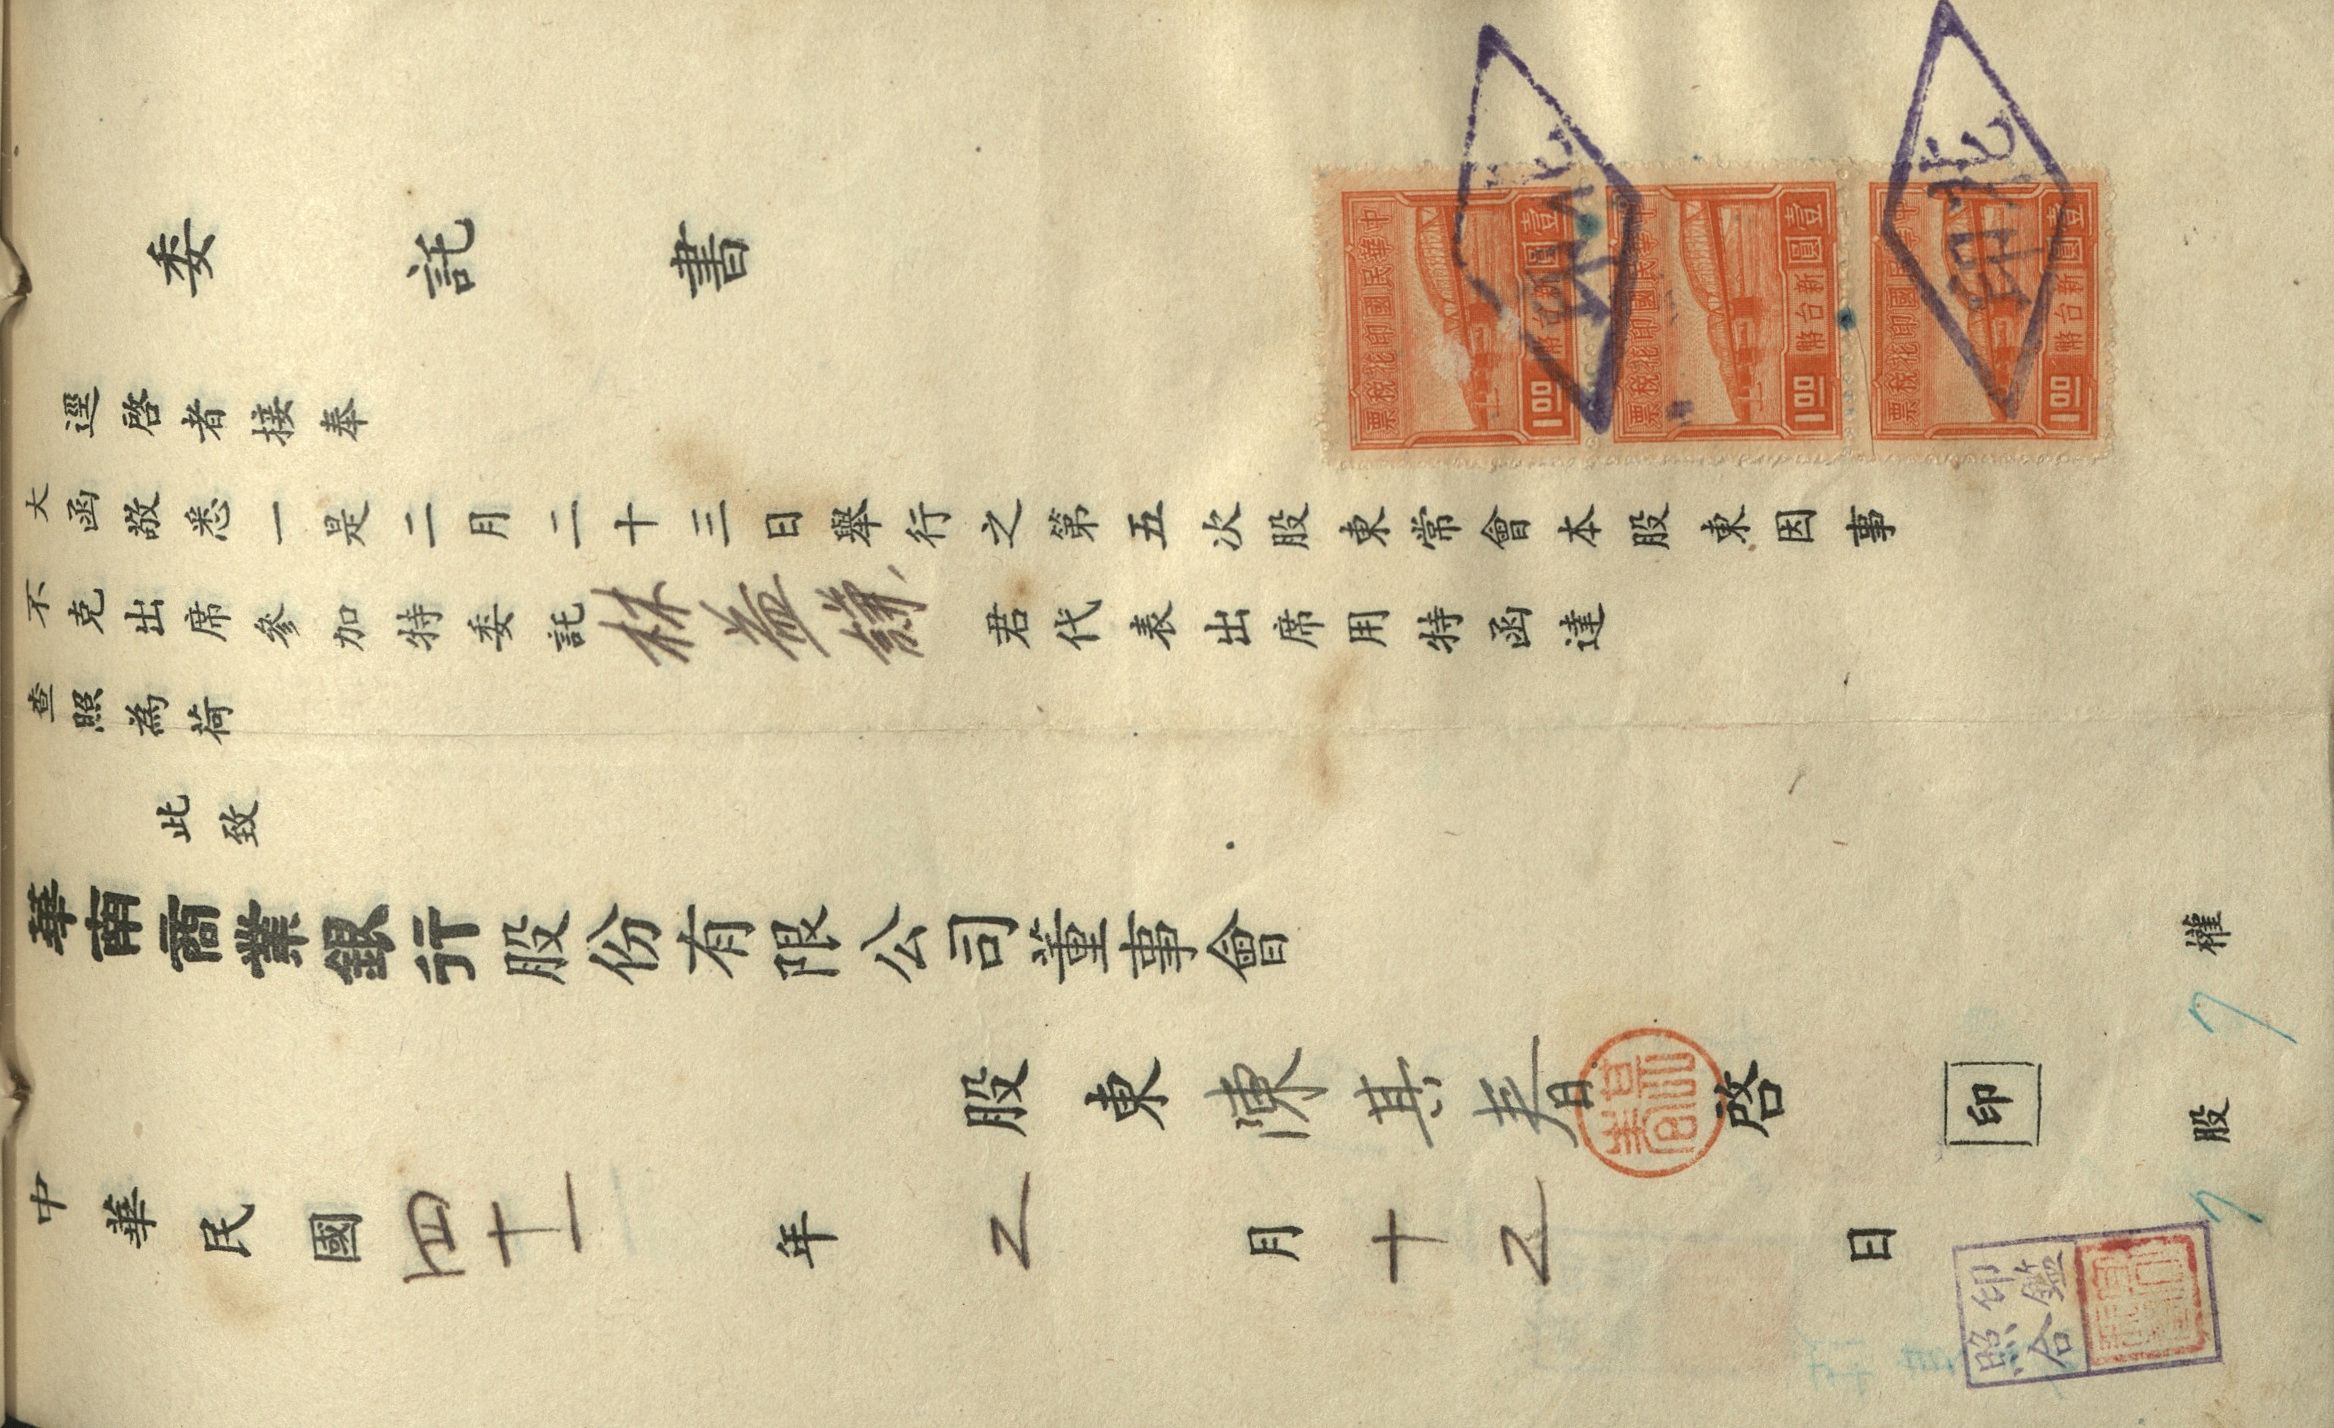 委託書
逕啓者接奉
大函敬悉一是二月二十三日舉行之第五次股東常會本股東因事
不克出席參加特委託林益謙君代表出席用特函達
查照為荷
此致
華南商業銀行股份有限公司董事會
股東陳其春啓
印
中華民國四十一年2月十2日
7股7權
印鑑
照合
中華民國印花稅票
壹圓新台幣
1.00
中華民國印花稅票
壹圓新台幣
1.00
中華民國印花稅票
壹圓新台幣
1.00